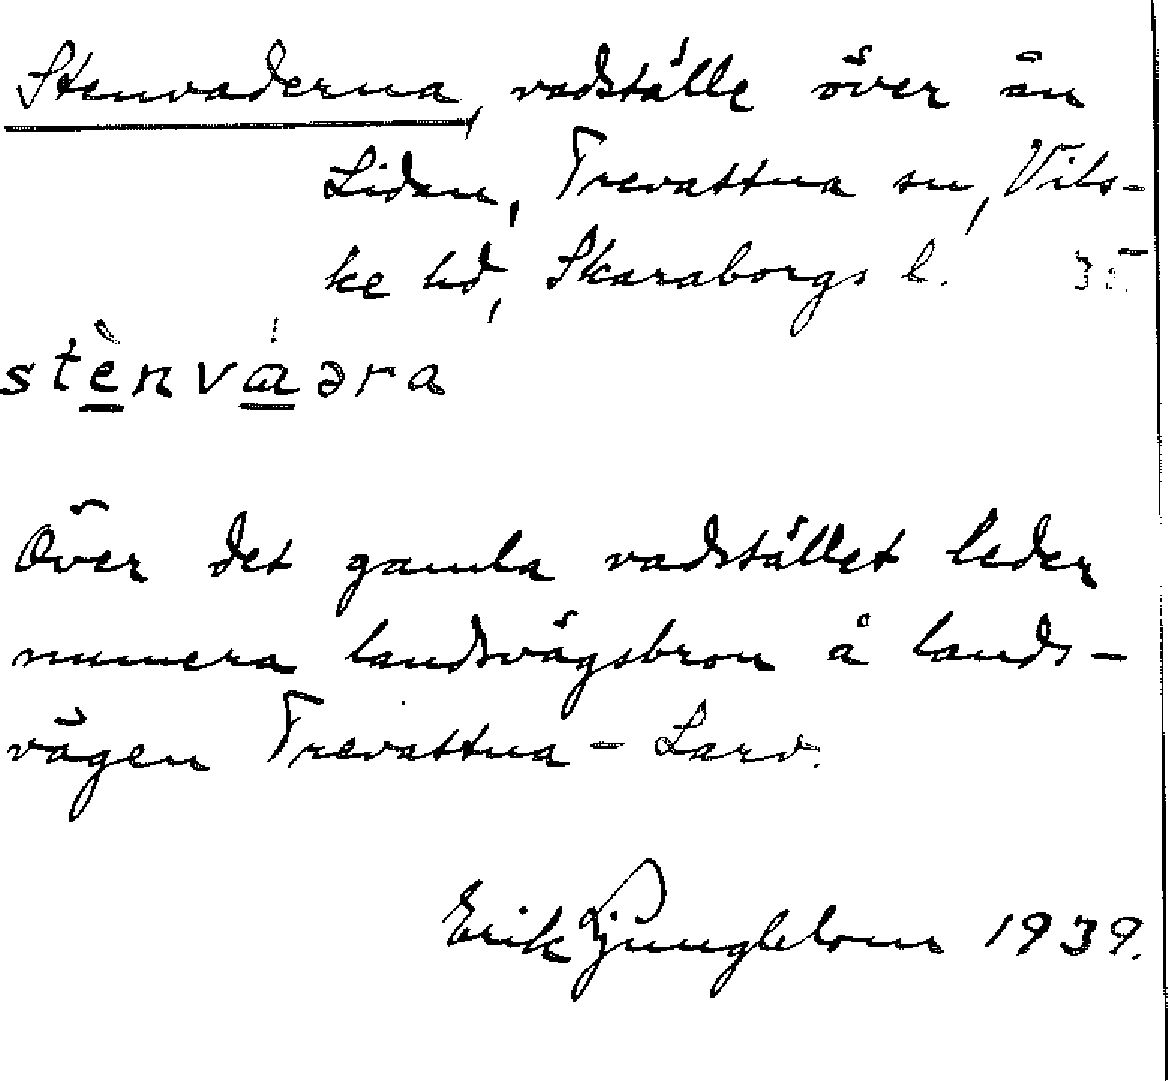 Stenvaderna, vadställe över ån
Lidan, Trevattna sn, Vils-
ke hd, Skaraborgs l. 35.
stènváəra
Över det gamla vadstället leder
numera landsvägsbron å lands-
vägen Trevattna - Larv.
Erik Ljungblom 1939.